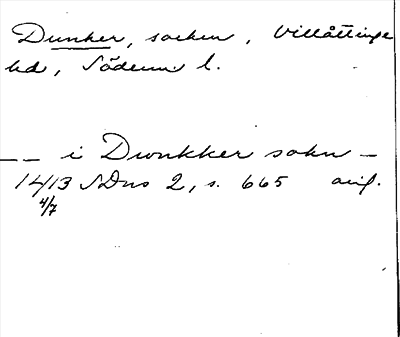 Dunker, socken, Villåttinge
hd, Söderm l.
— — i Dwnkker sokn —
14/13 SDns 2, s. 665 orig.
4/7